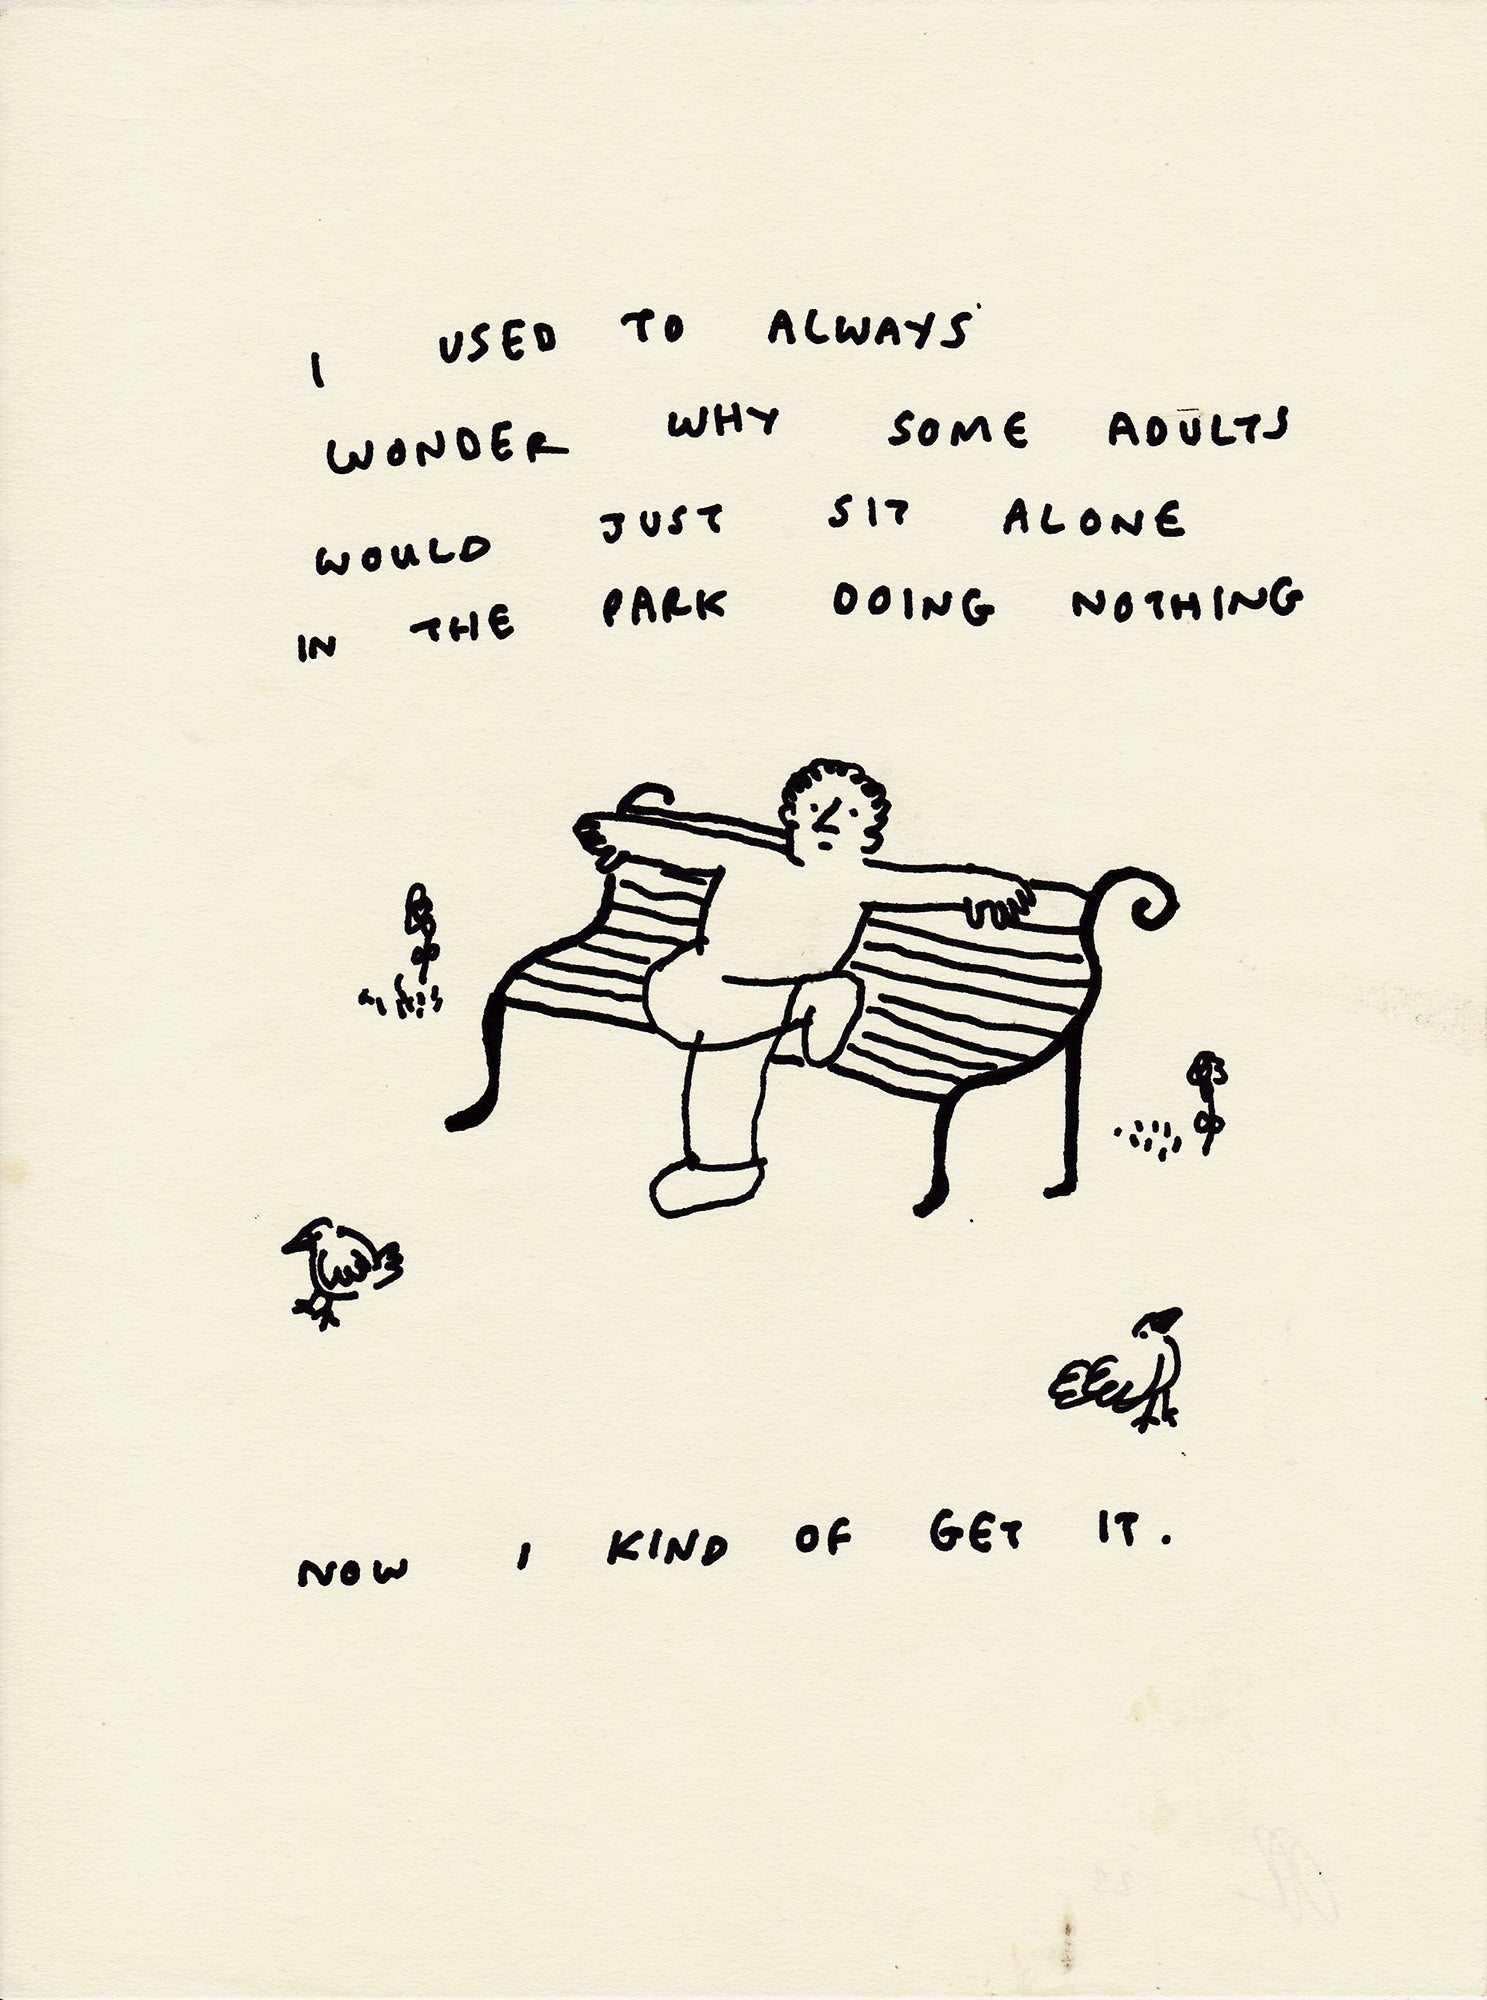 I USED TO ALWAYS
WONDER WHY SOME ADULTS
WOULD JUST SIT ALONE
IN THE PARK DOING NOTHING
NOW I KIND OF GET IT.